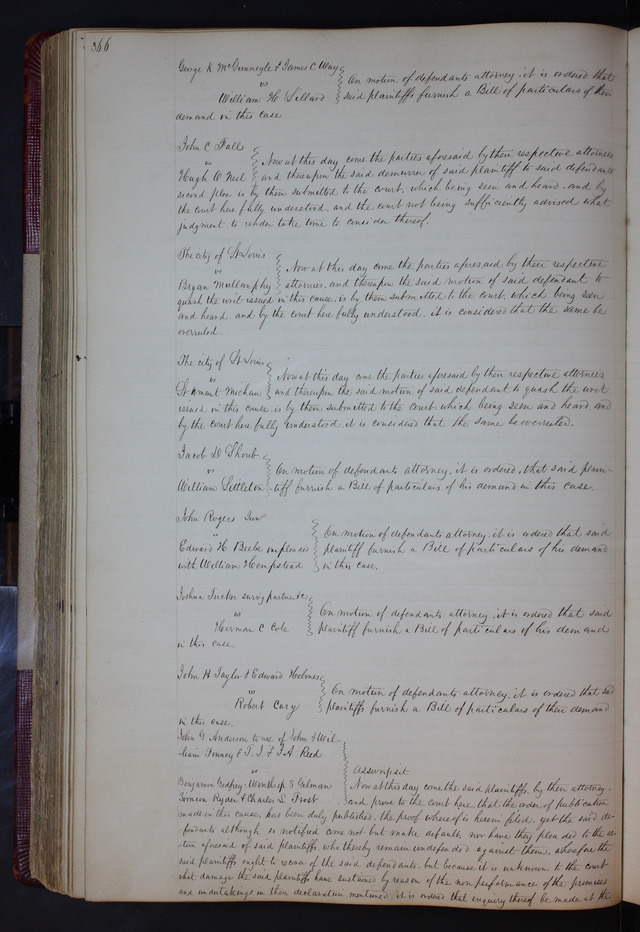 366
George K McGunnegle & James C Way
vs On motion of defendants attorney it is ordered that
William H Lillard said plaintiffs furnish a Bill of particulars of their
demand in this case
John C Fall
vs Now at this day come the parties aforesaid by their respective attornies
Hugh O Neil and thereupon the said demurrer of said plaintiff to said defendants
second plea is by them submitted to the court, which being seen and heard, and by
the court here fully understood, and the court not being sufficiently advised what
judgment to render take time to consider thereof.
The city of St Louis
vs Now at this day come the parties aforesaid by their respective
Bryan Mullanphy attornies, and thereupon the said motion of said defendant to
quash the writ issued in this cause, is by them submitted to the court, which being seen
and heard, and by the court here fully understood, it is considered that the same be
overruled.
The city of St Louis
vs Now at this day come the parties aforesaid by their respective attornies
St Amant Michau and thereupon the said motion of said defendant to quash the writ
issued in this cause, is by them submitted to the court, which being seen and heard, and
by the court here fully understood it is considered that the same be overruled.
Jacob D Shoub
vs On motion of defendants attorney, it is ordered, that said plain-
William Littleton tiff furnish a Bill of particulars of his demand in this case.
John Rogers
" On motion of defendants attorney, it is ordered that said
Edward H Beebe impleaded plaintiff furnish a Bill of particulars of his demand
with William Hempstead in this case.
Joshua Tucker surving partner &c
vs On motion of defendants attorney, it is ordered that said
Herman C Cole plaintiff furnish a Bill of particulars of his demand
in this case.
John H Taylor & Edward Holmes
vs On motion of defendants attorney, it is ordered that said
Robert Cary plaintiffs furnish a Bill of particulars of their demand
in this case.
John G Anderson to use of John & Wil-
liam Finney & T. J. & T A Reed
vs Assumpsit
Benjamin Godfrey, Winthrop S Gilman Now at this day come the said plaintiffs, by their attorney.
Simeon Ryder & Charles L Frost and prove to the court here, that the order of publication
made in this cause, has been duly published, the proof whereof is herein filed, yet the said de-
fendants although so notified come not but make default, nor have they plead to the ac-
tion aforesaid of said plaintiffs, who thereby remain undefended against them, wherefore the
said plaintiffs ought to recover of the said defendants, but because it is unknown to the court
what damage the said plaintiffs have sustained by reason of the non performance of the promises
and undertakings in their declaration mentioned, it is ordered that enquiry thereof be made at the